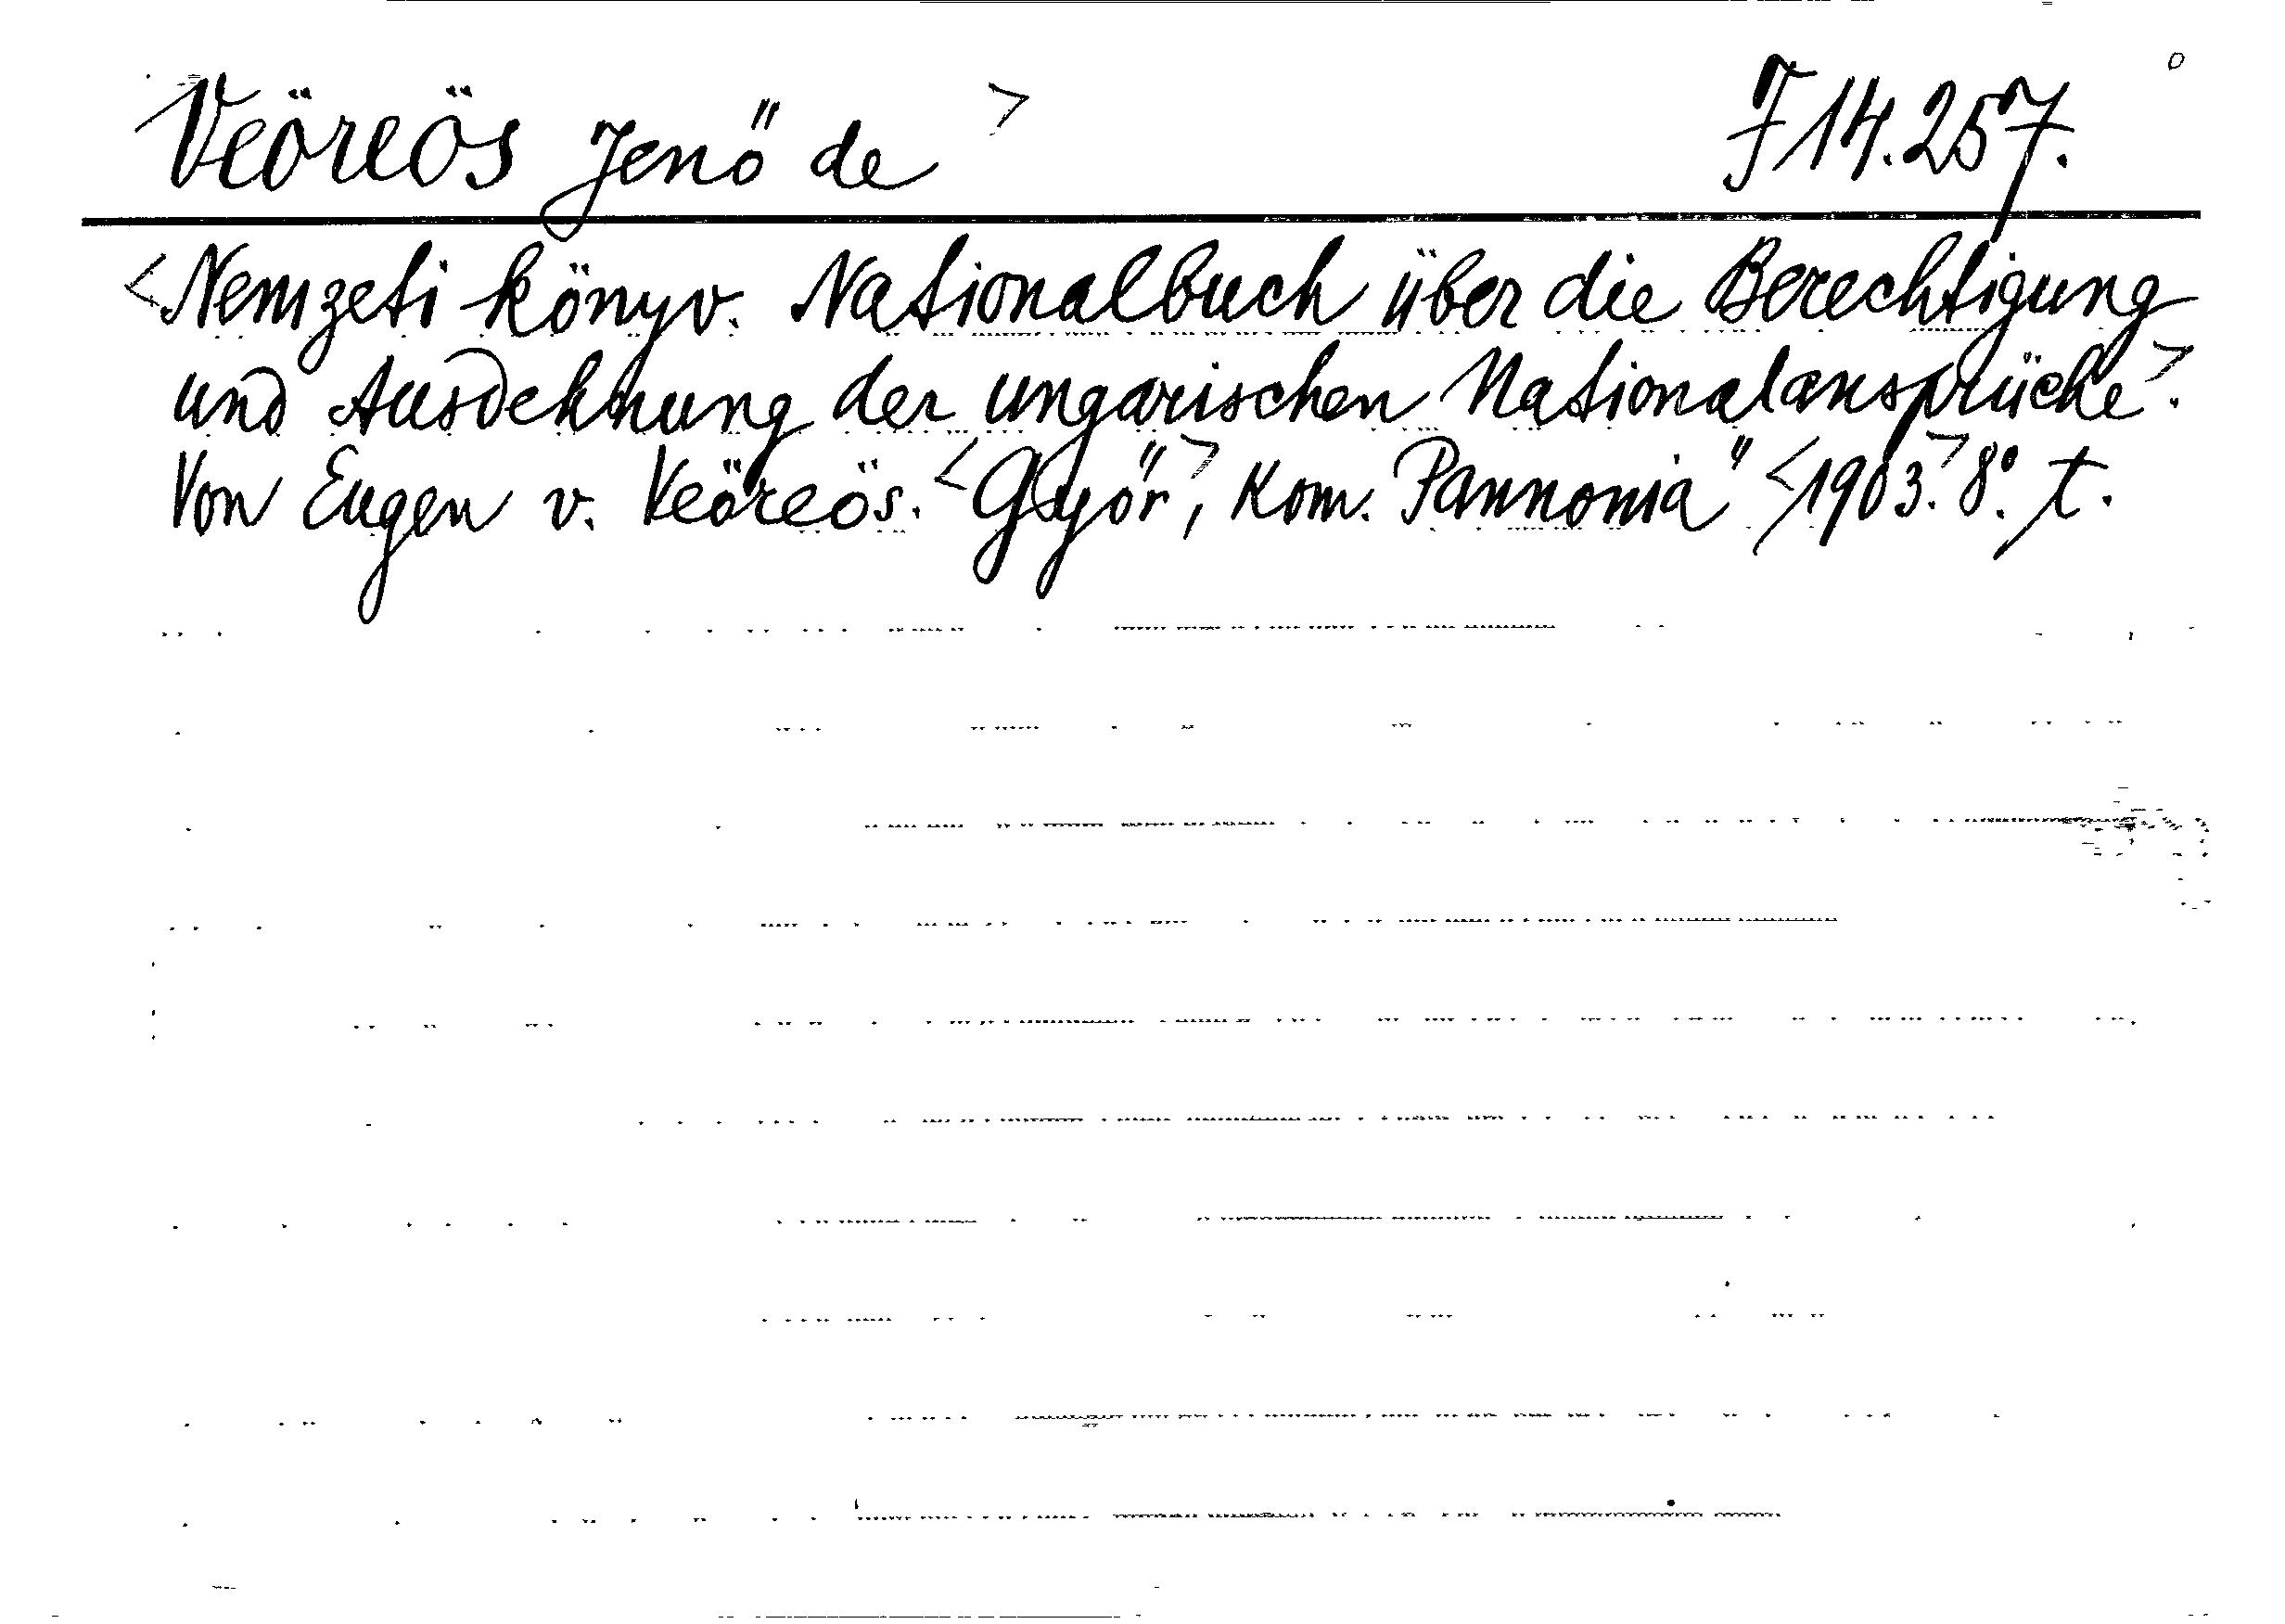 Veöreös Jenő de > F 14.257.
<Nemzeti könyv. Nationalbuch über die Berechtigung
und Ausdehnung der ungarischen Nationalansprüche>.
Von Eugen v. Veöreös. <Győr>, Kom. Pannonia" <1903.> 8° t.